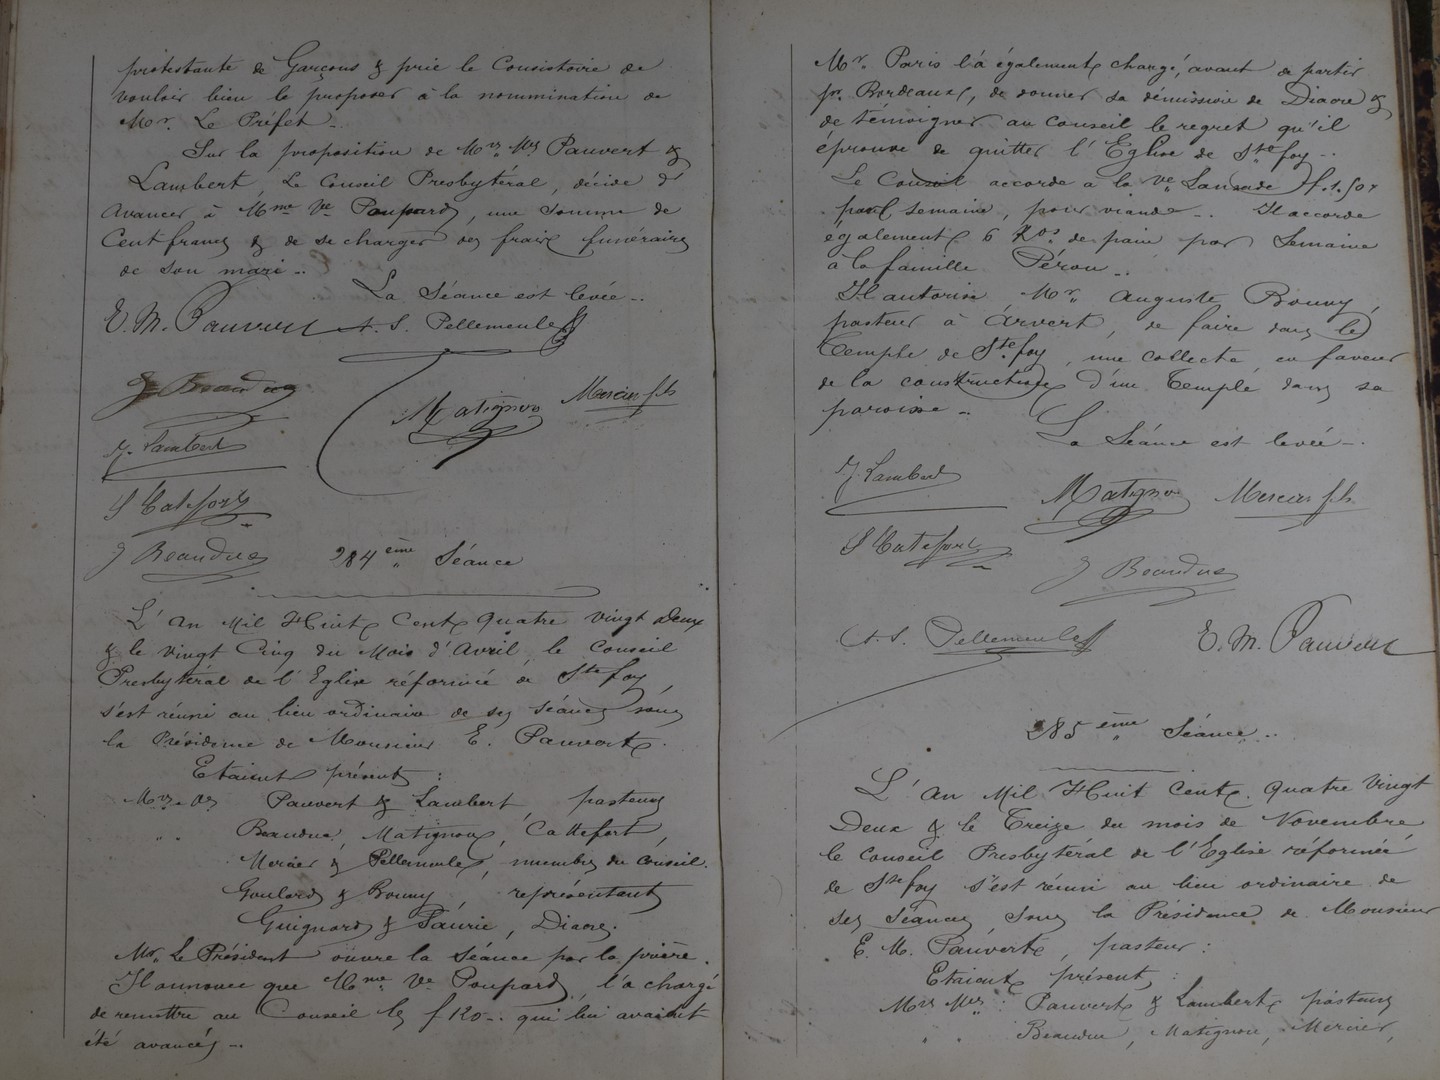 protestante de Garçons & prie le Consistoire de
vouloir bien le proposer à la nommination de
Mr. Le Préfet_.
Sur la proposition de Mrs. Mrs Pauvert &
Lambert, Le Conseil Presbytéral, décide d'
avancer à Mme Ve Poupard, une somme de
Cent francs & de se charger des frais funéraires
de son mari_..
La Séance est levée_..
E. M. Pauvert A. S. Pellemeule
J Beauduc
Matignon Mercier fils
J. Lambert
S Catefort
J Beauduc 284ème Séance
L'an Mil Huit Cent Quatre vingt Deux
& le vingt Cinq du Mois d'Avril, le Conseil
Presbytéral de l'Eglise réformée de Ste foy
s'est réuni au lieu ordinaire de ses séances sous
la Présidence de Monsieur E. Pauvert.
Etaient présents :
Mrs. Mrs Pauvert & Lambert, pasteurs
Beauduc, Matignon, Cattefort,
Mercier & Pellemeule, membres du Conseil.
Goulard & Bouny, représentant
Guignard & Laurie, Diacres.
Mr. Le Président ouvre la Séance par la prière.
Il annonce que Mme. Ve Poupard, l'a chargé
de remettre au Conseil les f qui lui avaient
été avancés_..
Mr. Paris l'a également chargé, avant de partir
pr. Bordeaux, de donner sa démission de Diacre &
de témoigner au Conseil le regret qu'il
éprouve de quitter l'Eglise de Ste foy_..
Le Conseil accorde à la ve f. 1.50c
par semaine, pour viande_.. Il accorde
également 6 Kos. de pain par Semaine
à la famille Pérou_..
Il autorise Mr. Auguste Bouny,
pasteur à Arvert, de faire dans le
Temple de Ste foy, une collecte en faveur
de la construction d'un Temple dans sa
paroisse_..
La Séance est levée_..
J Lambert
Matignon Mercier fils
S Catefort
J Beauduc
A. S. Pellemeule E. M. Pauvert
285ème Séance_..
L'an Mil Huit Cent Quatre Vingt
Deux & le Treize du mois de Novembre
le Conseil Presbytéral de l'Eglise réformée
de Ste foy s'est réuni au lieu ordinaire de
ses Séances sous la Présidence de Monsieur
E. M. Pauvert, pasteur :
Etaient présent :
Mrs Mrs : Pauvert & Lambert pasteurs
Beauduc, Matignon, Mercier,